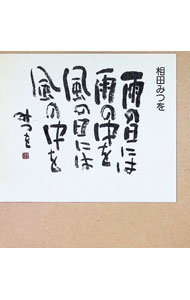 相田みつを
雨の日には
雨の中を
風の日には
風の中を
みつを